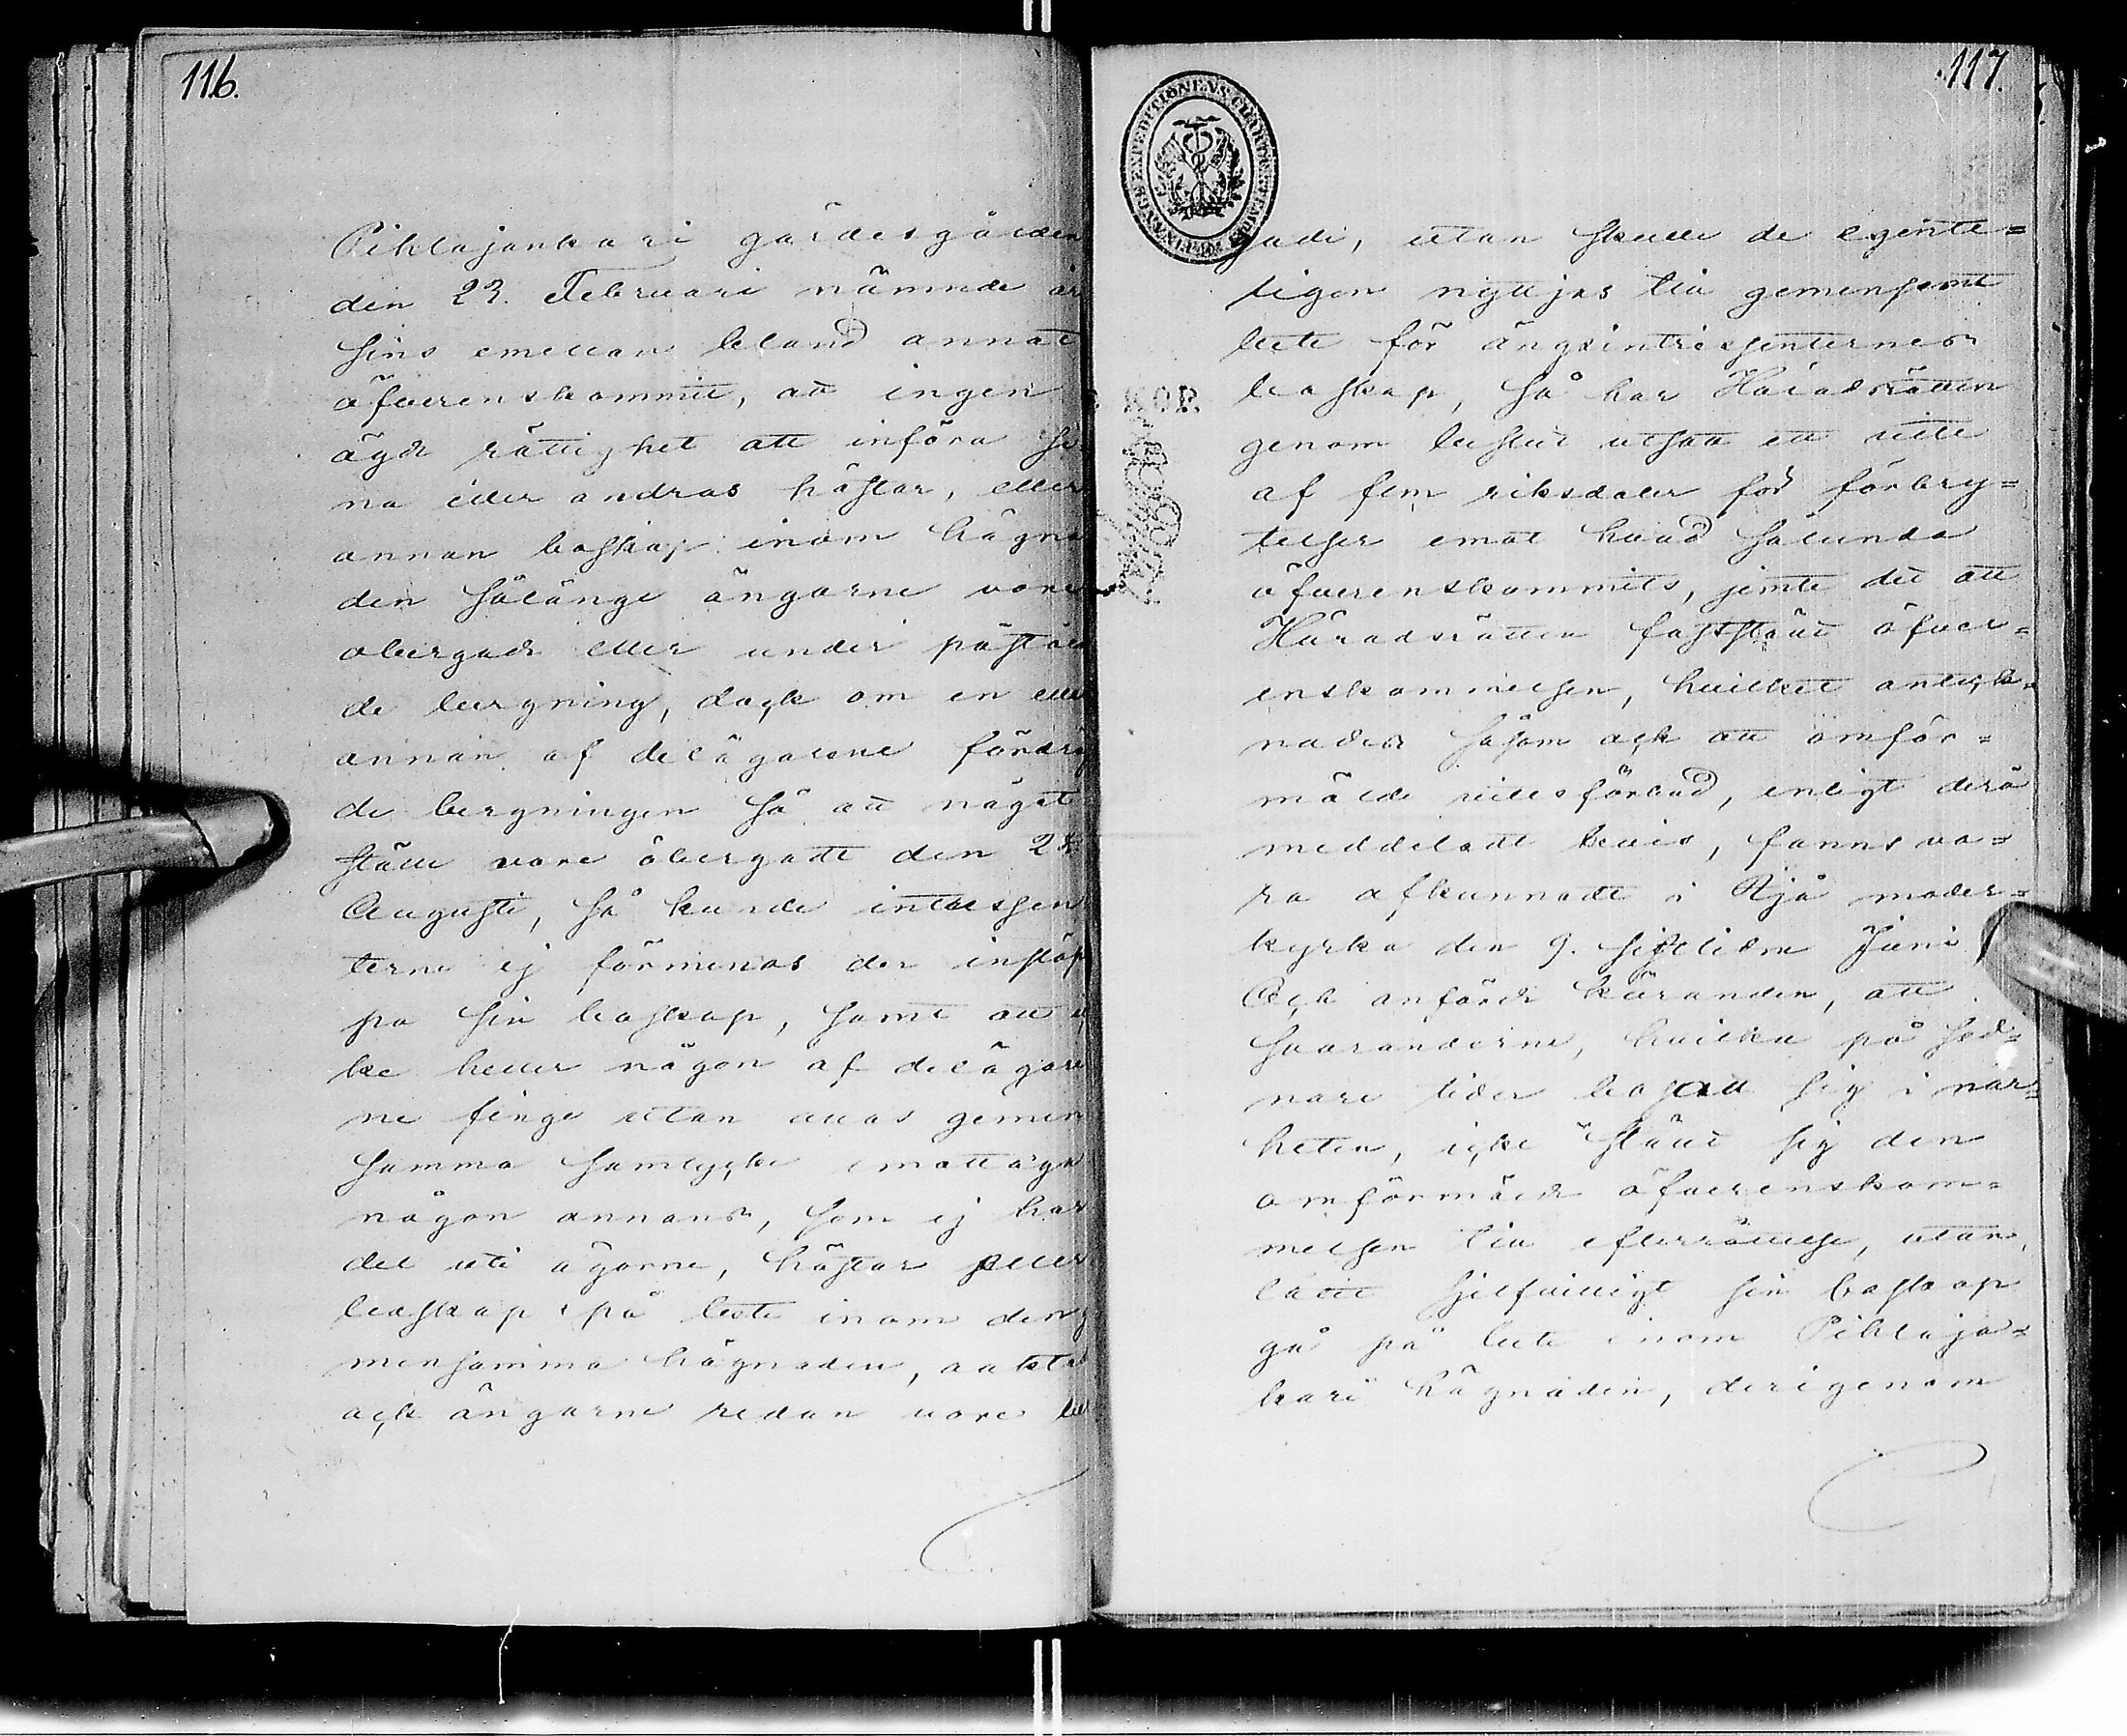 116.
Pihlajankari gärdesgården
den 23. Februari nämnde år
sins emellan bland annat
öfverenskommit, att ingen
ägde rättighet att införa si
na eller andras hästar, eller
annan boskap inom hägna
den sålänge ängarne vore
obergade eller under påståen
de bergning, dock om en eller
annan af delägarene fördröj
de bergningen så att något
ställe vore obergadt den 24
Augusti, så kunde intressen
terne ej förmenas der insläp
pa sin boskap, samt att ic
ke heller någon af delägare
ne finge utan allas gemen
samma samtycke emottaga
någon annans, som ej har
del uti ägorne, hästar eller
boskap på bete inom den ge
mensamma hägnaden, oaktad
ock ängarne redan vore ber
117.
FINANCE EXPEDITIONENS
KOP.
gade, utan skulle de egente=
ligen nyttjas till gemensamt
bete för ängsintressenternes
boskap, så har Häradsrätten
genom beslut utsatt ett vite
af fem riksdaler för förbry=
telser emot hvad sålunda
öfverenskommits, jemte det att
Häradsrätten fastställt öfver=
enskommelsen, hvilket anteck=
nades såsom ock att omför=
mälde vitesförbud, enligt derå
meddeladt bevis, fanns va=
ra afkunnadt i Ijå moder=
kyrka den 9. sistlidne Juni
Och anförde käranden, att
svaranderne, hvilka på sed=
nare tider bosatt sig i när=
heten, icke ställt sig den
omförmälde öfverenskom=
melsen till efterrättelse, utan
låtit sjelfvilligt sin boskap
gå på bete inom Pihlaja=
kari hägnaden, derigenom